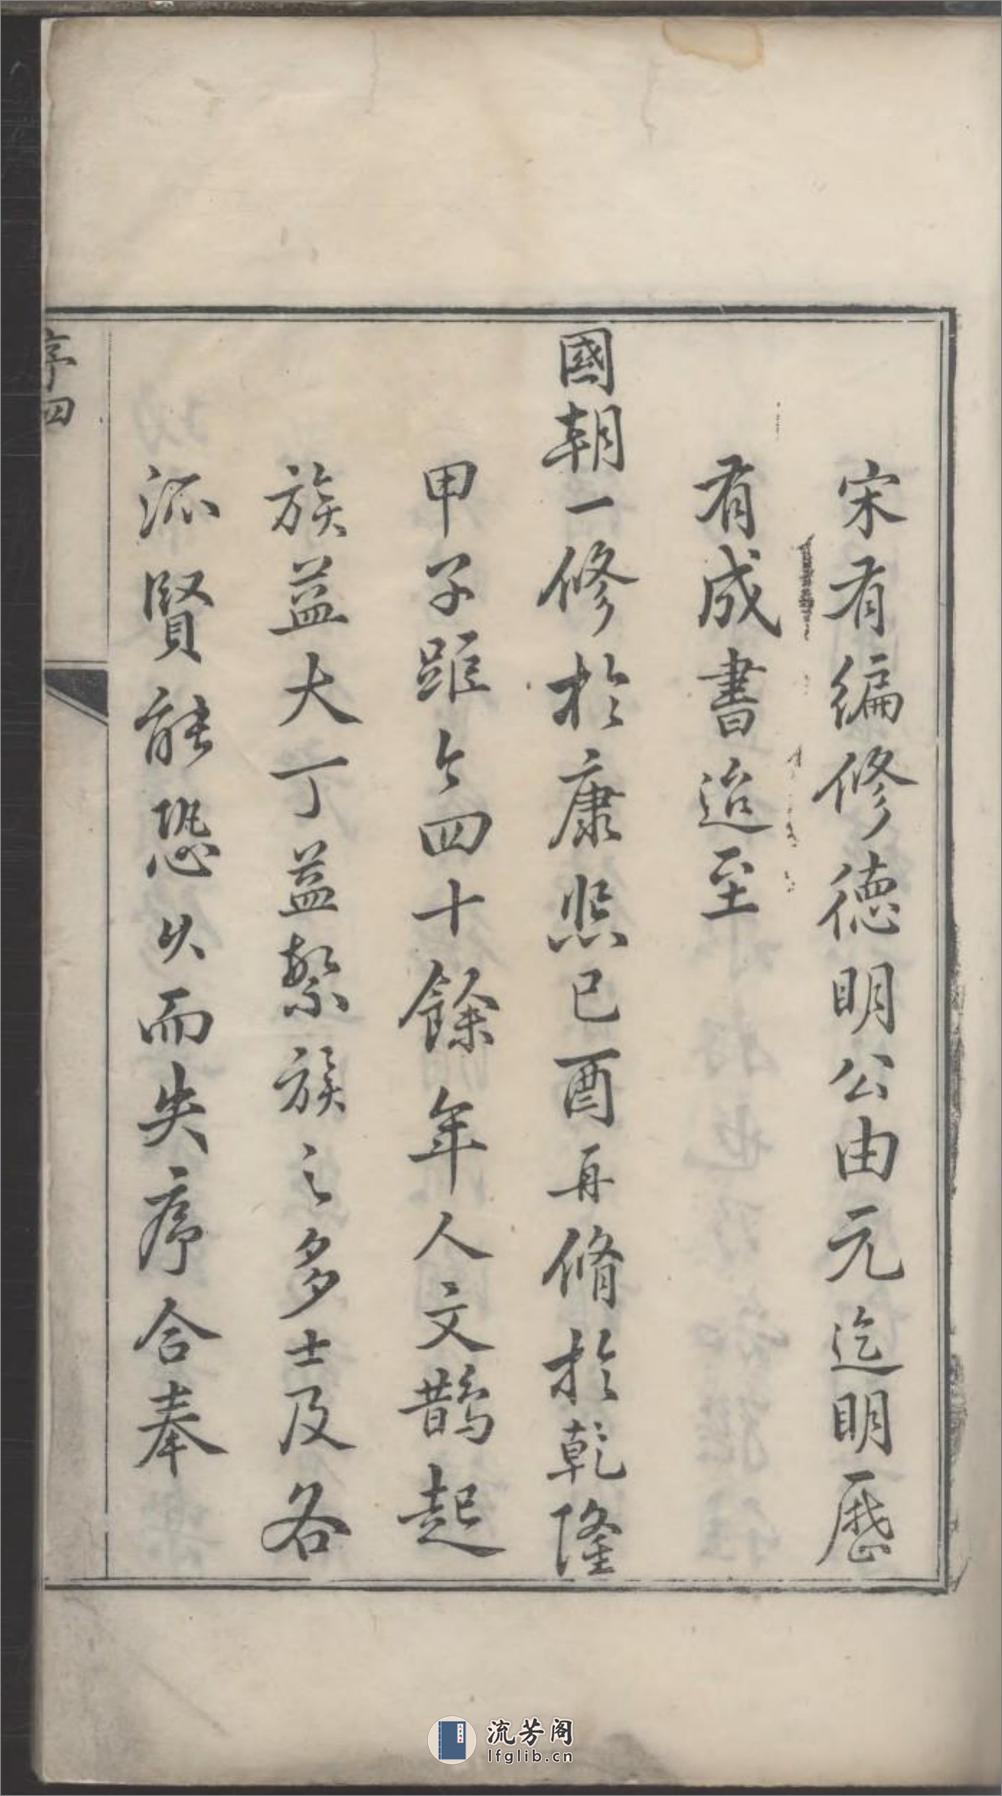 宋有編修德明公由元迄明歷
有成書迨至
國朝一修於康熙己酉再脩於乾隆
甲子距今四十餘年人文鵲起
族益大丁益繁族之多士及各
派賢能恐久而失序合奉
序四
流芳阁
lfglib.cn